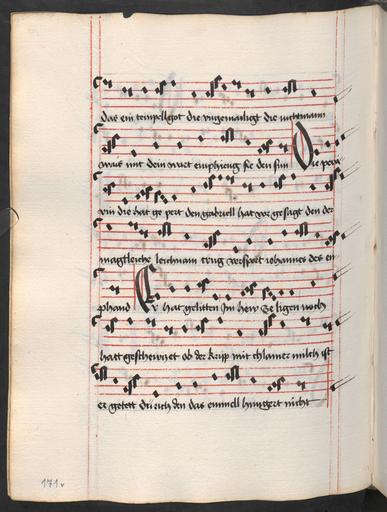 das ein tempell got die vngemailigt die iuckfrann
was mit dem wart emphieng sie den sun Die porten
vin die hat ge pert den gabriell hat vor gesagt den der
magtleiche leichnam trug verspert iohannes des en
phand Er hat gelitten Jm hew Se ligen noch
hatt gescheuczet ob der kripp mit chlainer milch ist
er getett durich den das ainuell hungert nicht
171v